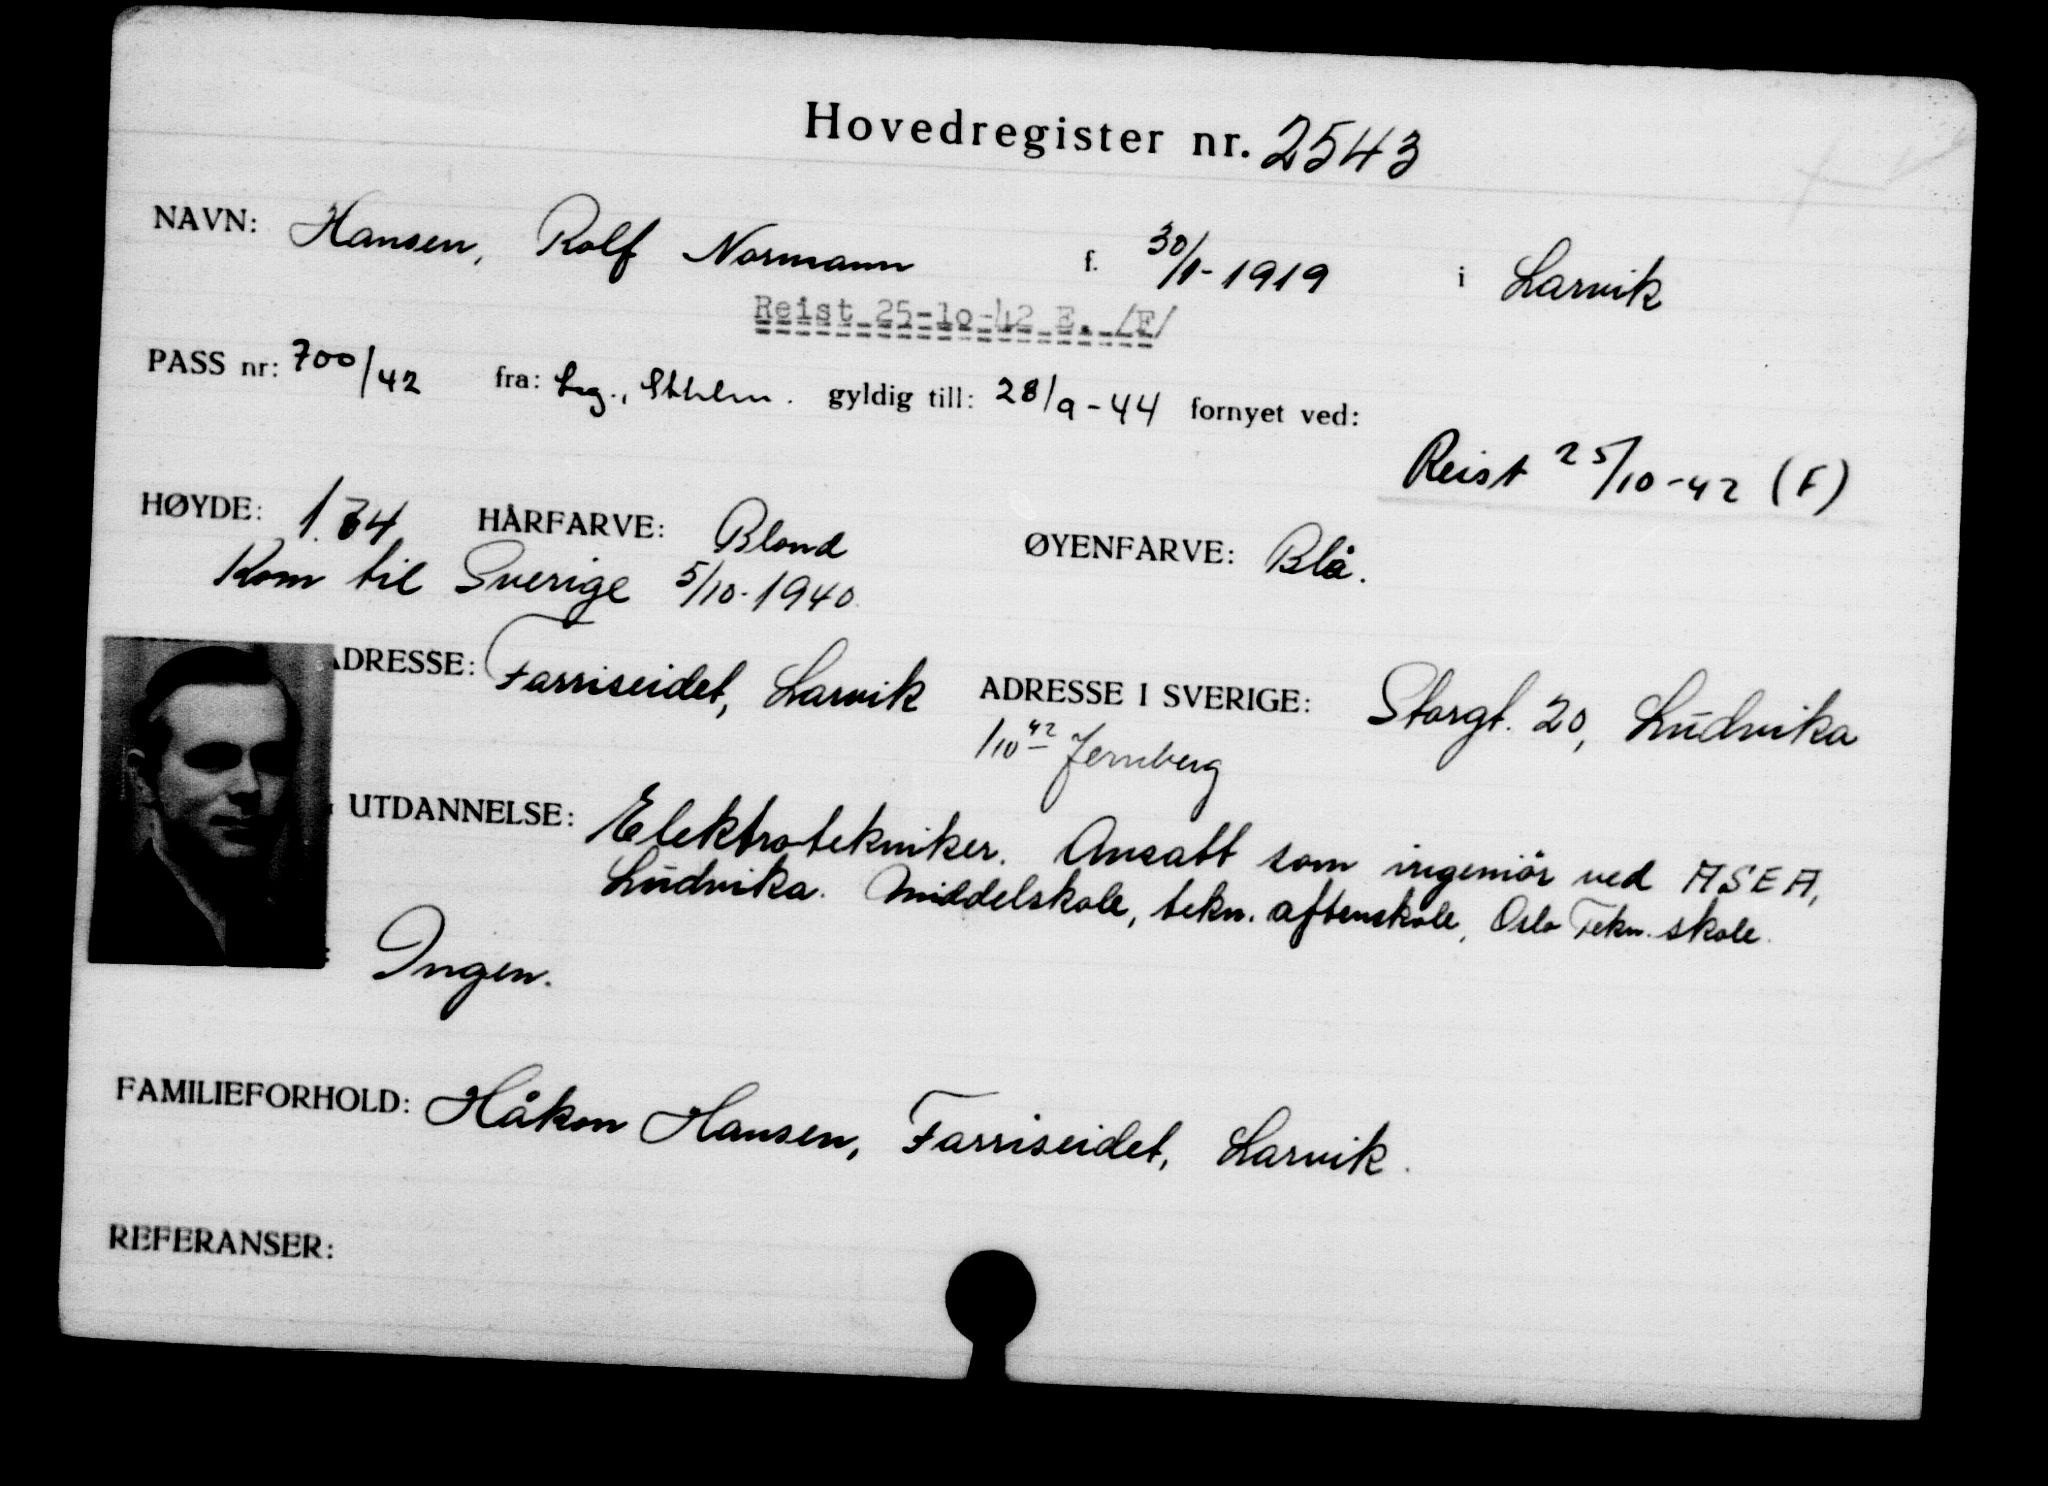 Hovedregister nr. 2543
NAVN: Hansen, Rolf Normann f. 30/1-1919 i Larvik
Reist 25-10-42 E. /F/
PASS nr: 700/42 fra: Leg., Sthlm. gyldig till: 28/9-44 fornyet ved:
Reist 25/10-42 (F)
HØYDE: 1.74 HÅRFARVE: Blond ØYENFARVE: Blå.
Kom til Sverige 5/10-1940.
ADRESSE: Farriseidet, Larvik ADRESSE I SVERIGE: Storgt. 20, Ludvika
1/10 42 Jernberg
UTDANNELSE: Elektrotekniker. Ansatt som ingeniör ved ASEA,
Ludvika. Middelskole, tekn. aftenskole, Oslo Tekn. skole.
: Ingen.
FAMILIEFORHOLD: Håkon Hansen, Farriseidet, Larvik.
REFERANSER: